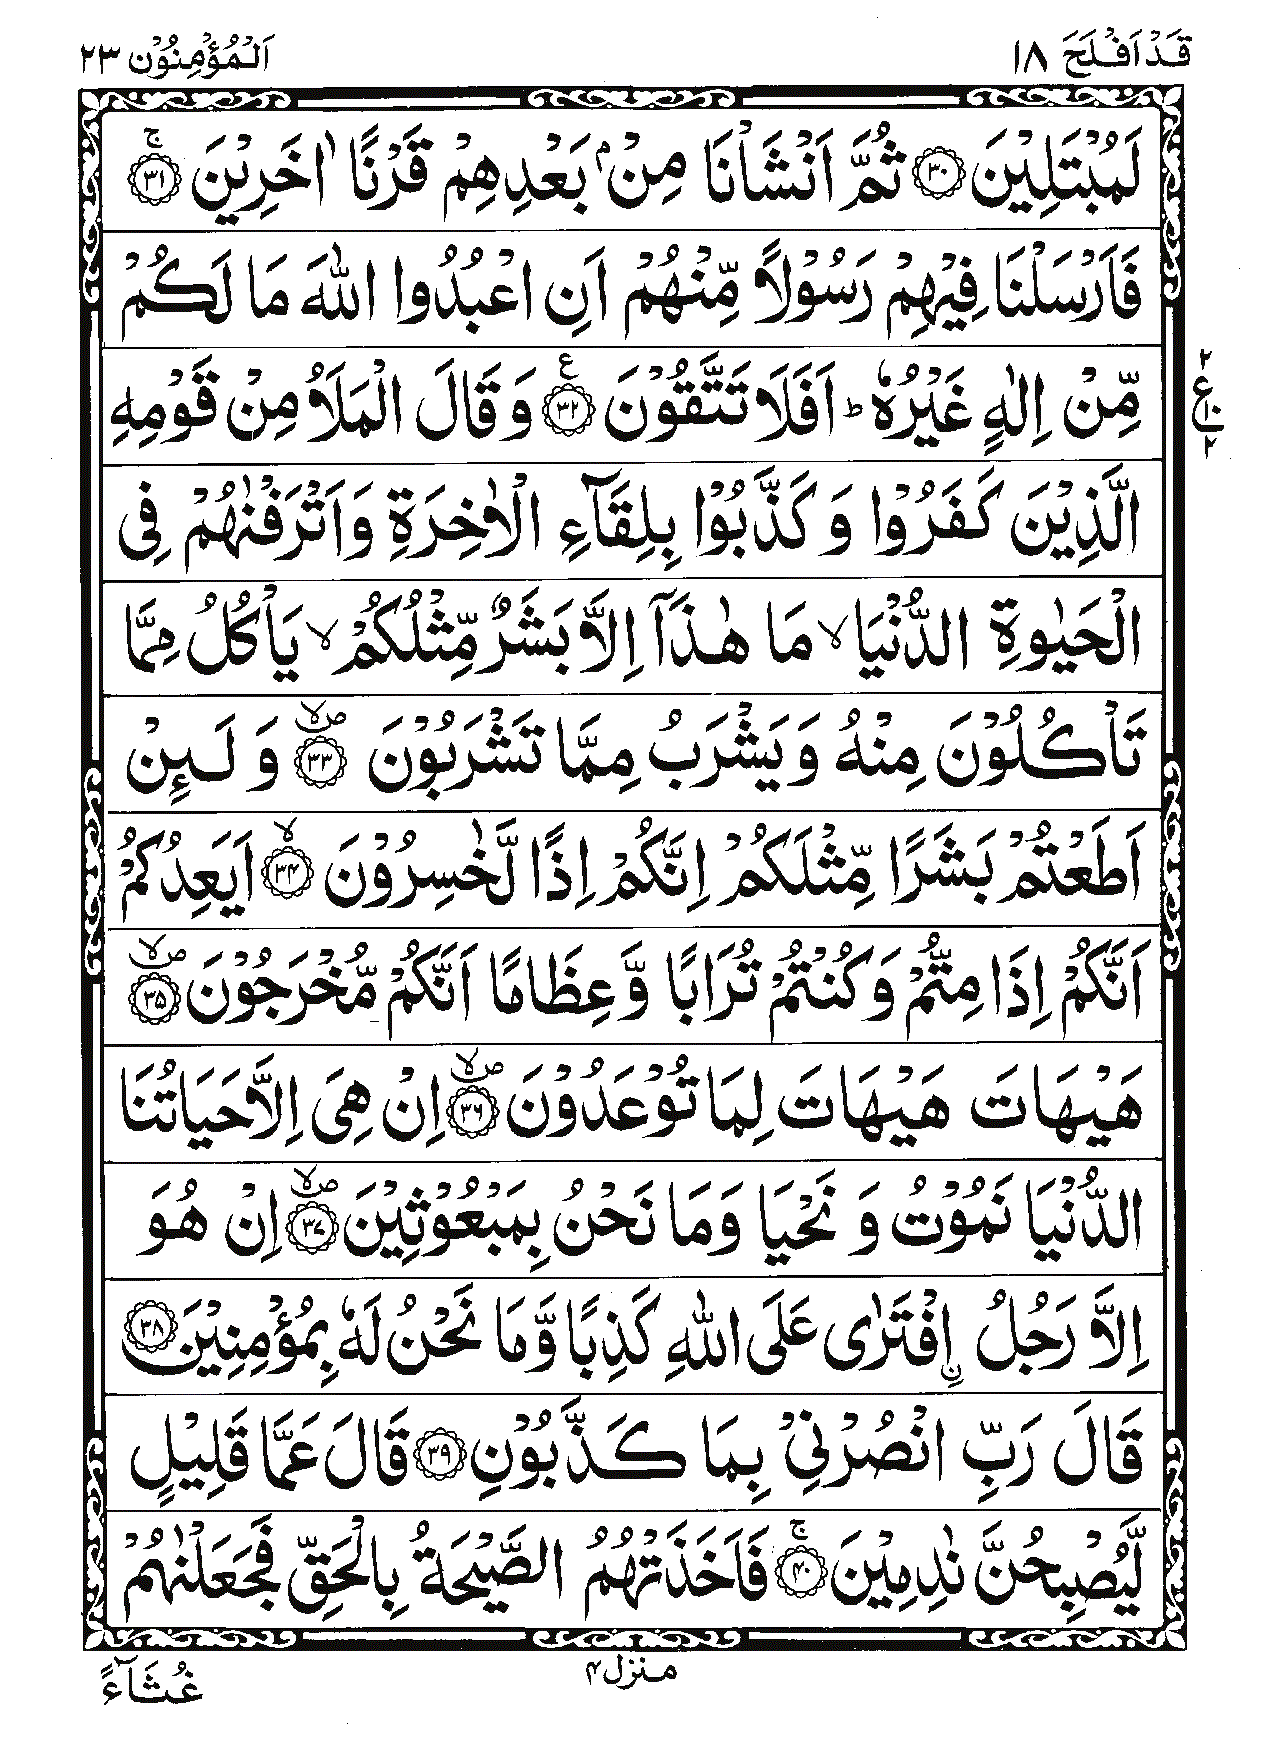 قَدْ اَفْلَحَ ۱۸
اَلْمُؤْمِنُوْن ۲۳
لَمُبْتَلِيْنَ ﴿۳۰﴾ ثُمَّ اَنْشَاْنَا مِنْۢ بَعْدِهِمْ قَرْنًا اٰخَرِيْنَ ۚ﴿۳۱﴾
فَاَرْسَلْنَا فِيْهِمْ رَسُوْلًا مِّنْهُمْ اَنِ اعْبُدُوا اللّٰهَ مَا لَكُمْ
مِّنْ اِلٰهٍ غَيْرُهٗ ؕ اَفَلَا تَتَّقُوْنَ ﴿۳۲﴾ ع وَ قَالَ الْمَلَاُ مِنْ قَوْمِهِ
۲ ع ۱۰ ۲
الَّذِيْنَ كَفَرُوْا وَ كَذَّبُوْا بِلِقَآءِ الْاٰخِرَةِ وَاَتْرَفْنٰهُمْ فِى
الْحَيٰوةِ الدُّنْيَا ۙ مَا هٰذَآ اِلَّا بَشَرٌ مِّثْلُكُمْ ۙ يَاْكُلُ مِمَّا
تَاْكُلُوْنَ مِنْهُ وَيَشْرَبُ مِمَّا تَشْرَبُوْنَ ﴿۳۳﴾ صلا وَ لَـٮِٕنْ
اَطَعْتُمْ بَشَرًا مِّثْلَكُمْ اِنَّكُمْ اِذًا لَّخٰسِرُوْنَ ۙ﴿۳۴﴾ اَيَعِدُكُمْ
اَنَّكُمْ اِذَا مِتُّمْ وَكُنْتُمْ تُرَابًا وَّعِظَامًا اَنَّكُمْ مُّخْرَجُوْنَ ﴿۳۵﴾ صلا
هَيْهَاتَ هَيْهَاتَ لِمَا تُوْعَدُوْنَ ﴿۳۶﴾ صلا اِنْ هِىَ اِلَّا حَيَاتُنَا
الدُّنْيَا نَمُوْتُ وَ نَحْيَا وَمَا نَحْنُ بِمَبْعُوْثِيْنَ ﴿۳۷﴾ صلا اِنْ هُوَ
اِلَّا رَجُلُ اۨفْتَرٰى عَلَى اللّٰهِ كَذِبًا وَّمَا نَحْنُ لَهٗ بِمُؤْمِنِيْنَ ﴿۳۸﴾
قَالَ رَبِّ انْصُرْنِىْ بِمَا كَذَّبُوْنِ ﴿۳۹﴾ قَالَ عَمَّا قَلِيْلٍ
لَّيُصْبِحُنَّ نٰدِمِيْنَ ۚ﴿۴۰﴾ فَاَخَذَتْهُمُ الصَّيْحَةُ بِالْحَقِّ فَجَعَلْنٰهُمْ
منزل ۴
غُثَآءً